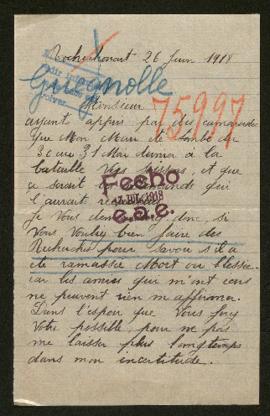 Rochechouart 26 Juin 1918
Guignolle
Monsieur
75997
ayant appris par des camarades
que Mon Mari tombe du
30 au 31 Mai dernier à la
bataille et que
ce serait qui
l'aurait
Feebo
e.a.e.
Je Vous donc, si
Vous Voulez bien faire des
Recherches pour Savoir s'il a
été ramassée Mort ou blessée
car les amies qui m'ont
ne peuvent rien m'affirmer.
Dans l'espoir que Vous ferez
Votre possible pour ne pas
me laisser plus longtemps
dans mon incertitude.